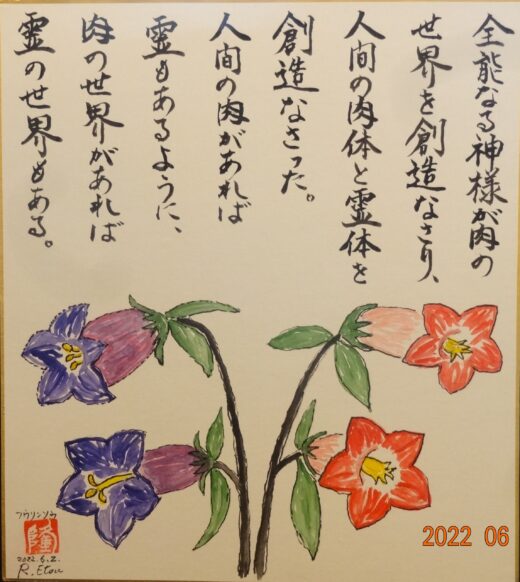 全能なる神様が肉の
世界を創造なさり、
人間の肉体と霊体を
創造なさった。
人間の肉があれば
霊もあるように、
肉の世界があれば
霊の世界もある。
フウリンソウ
隆
2022.6.2.
R. Etou
2022 06